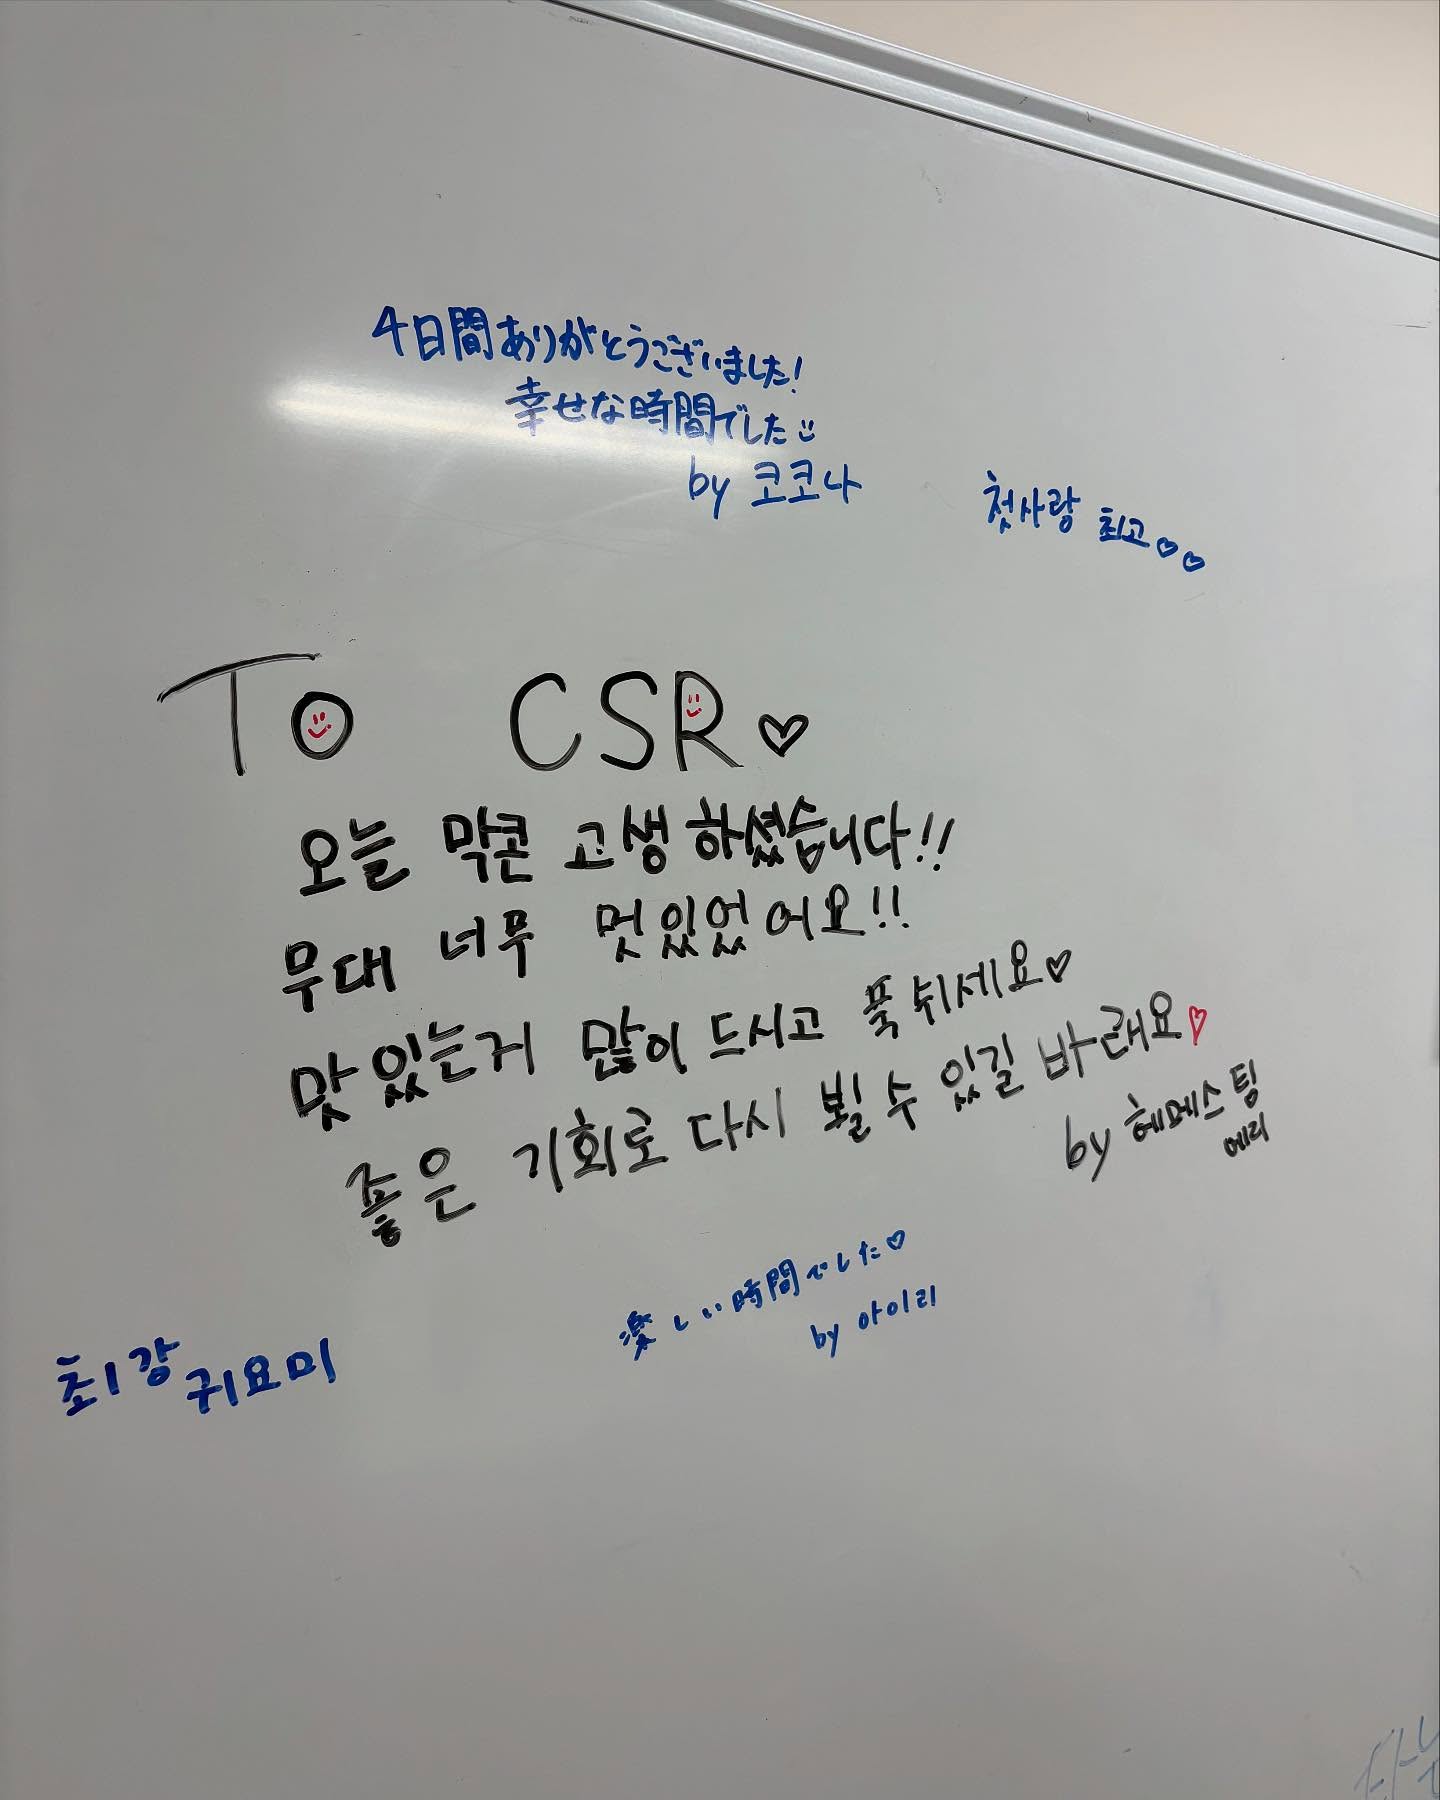 4日間ありがとうございました!
幸せな時間でした
by 코코나
첫사랑 최고♡♡
To CSR♡
오늘 막콘 고생 하셨습니다!!
무대 너무 멋있었어요!!
맛있는거 많이 드시고 푹 쉬세요♡
좋은 기회로 다시 뵐 수 있길 바래요♡
by 헤메스팀
예리
楽しい時間でした♡
by 아이리
최강 귀요미